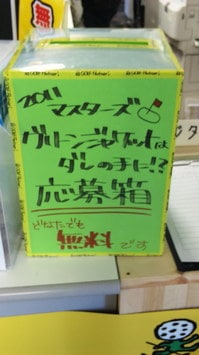 2011
マスターズ
グリーンジャケットは
ダレの手に!?
応募箱
どなたでも
無料です